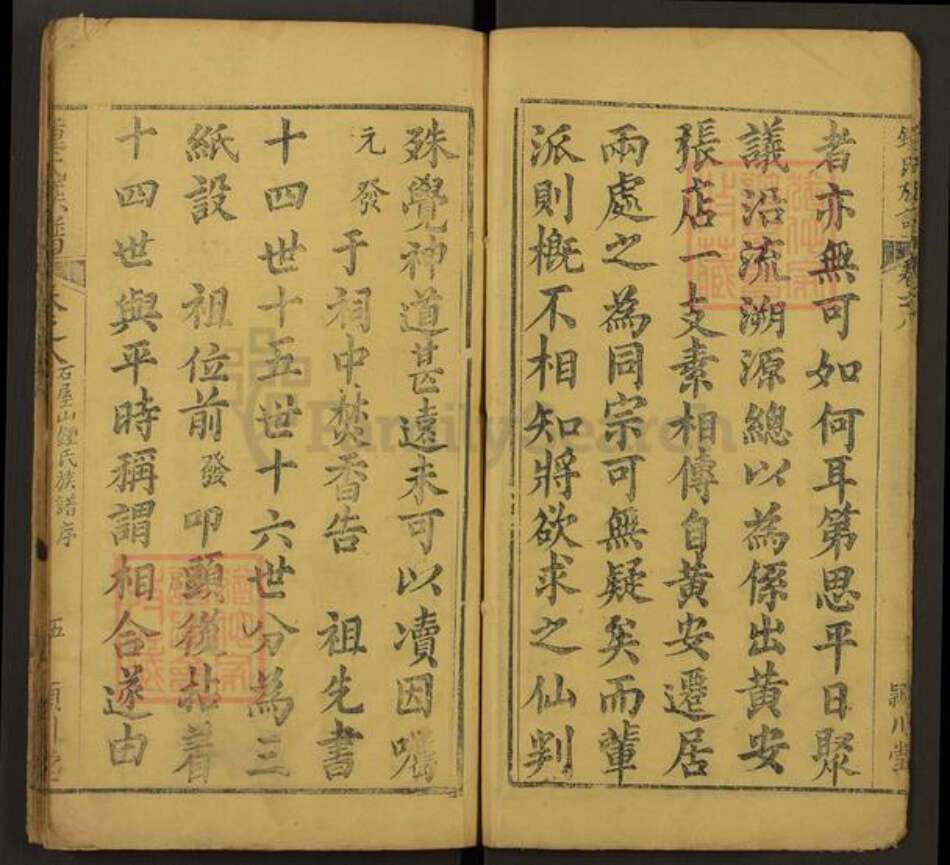 鍾氏族譜
卷之八
潁川堂
者亦無可如何耳第思平日聚
議沿流溯源總以為係出黄安
張店一支素相傳自黄安遷居
兩處之為同宗可無疑矣而輩
派則概不相知將欲求之仙判
殊覺神道甚遠未可以凟因囑
元發于祠中焚香告 祖先書
十四世十五世十六世分為三
紙設 祖位前發叩頭後拈着
十四世與平時稱謂相合遂由
石屋山鍾氏族譜序
五
FamilySearch